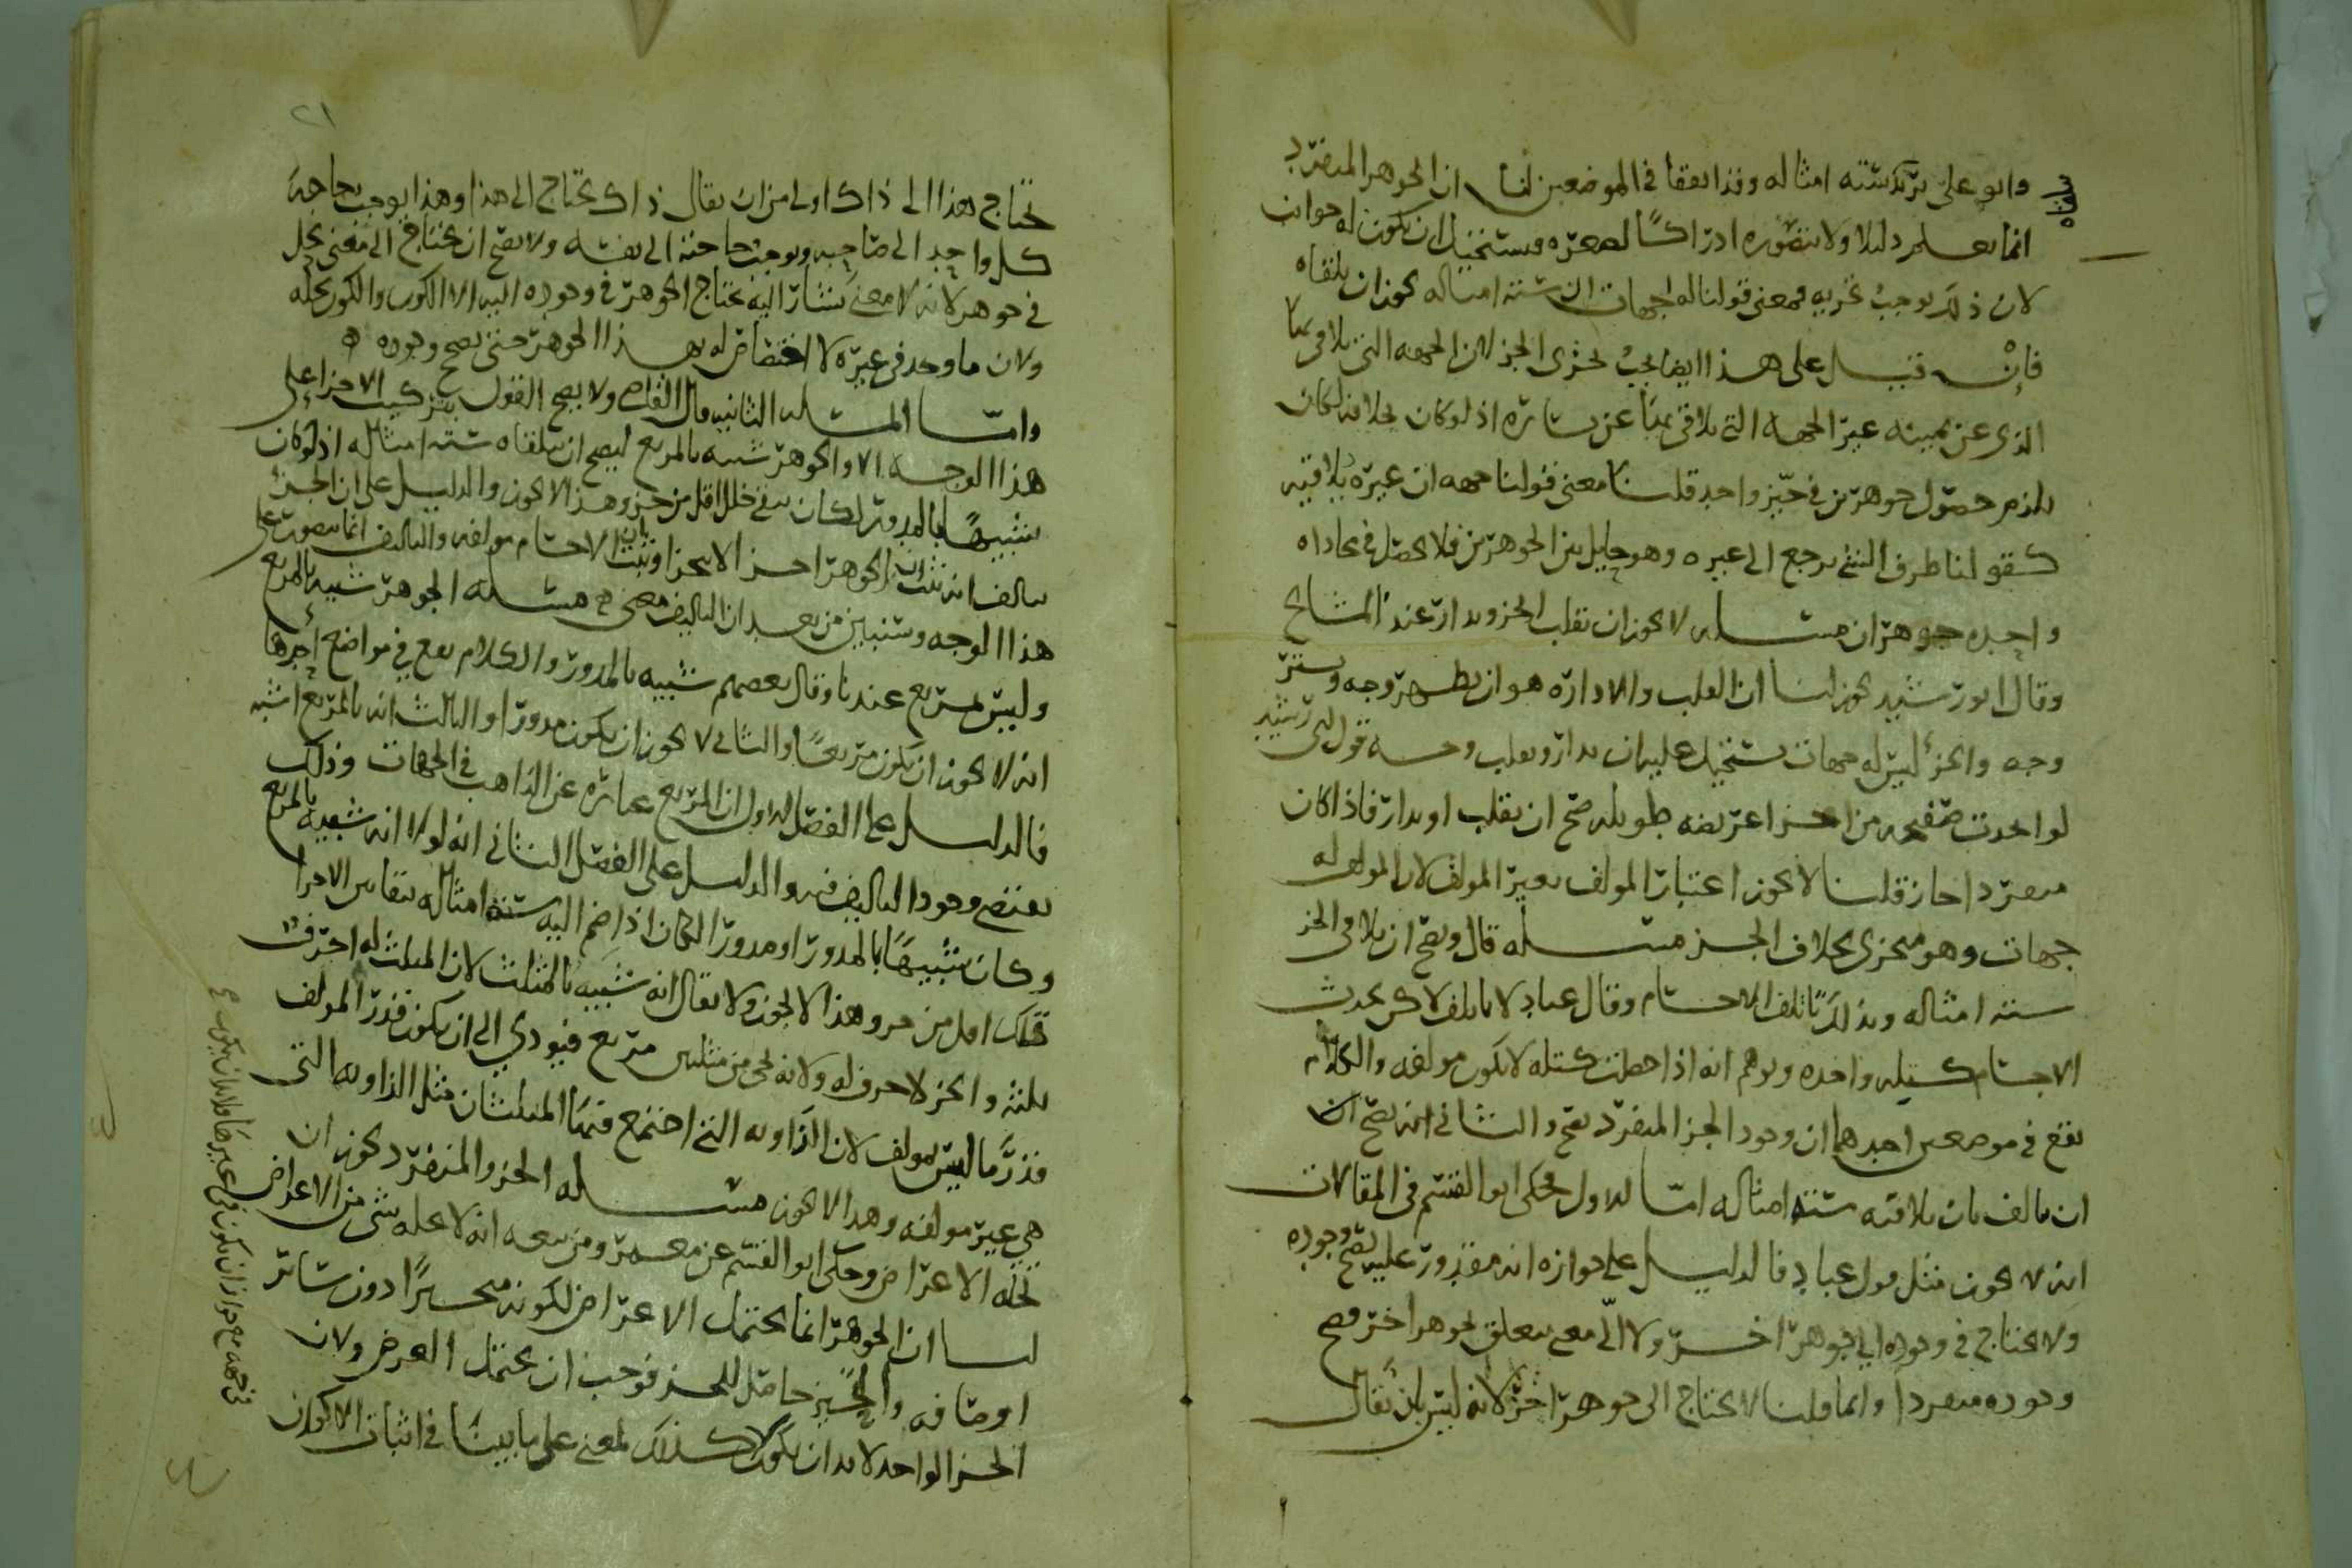 وابو علي بتركبه ستة امثاله وقد ابعقا في الموضعين لنا ان الجوهر المنفرد
انما يعلم دليلا ولا يتصوره ادراكا لصغره ويستحيل ان يكون له جوانب
لان ذلك يوجب تجزيه ومعنى قولنا له جهات ان ستة امثاله يجوز ان يلقاه
فان قيل على هذا ايضا يجب تجزي الجز لان الجهه التي يلاقي بها
الذي عن يمينه غير الجهه التي يلاقي بها عن يساره اذ لو كان بخلافه لكان
يلزم حصول جوهرين في حيز واحد قلنا معنى قولنا جهه ان غيره يلاقيه
كقولنا طرف الشي يرجع الى غيره وهو حايل بين الجوهرين فلا يحصل في محاذاه
واحده جوهران مسله لا يجوز ان يقلب الجز ويدار عند المشايخ
وقال ابو رشيد يجوز لنا ان القلب والاداره هو ان يظهر وجه ويستر
وجه والجز ليس له جهات يستحيل عليه ان يدار ويقلب وجه قول ابي رشيد
لو اتخذت صفيحه من اجزا عريضه طويله صح ان يقلب او يدار فاذا كان
منفردا جاز قلنا لا يجوز اعتبار المولف بغير المولف لان المولف له
جهات وهو متجزي بخلاف الجز مسله قال ويصح ان يلاقي الجز
ستة امثاله وبذلك تاتلف الاجسام وقال عباد لا ياتلف لاكن يحدث
الاجسام كتيله واحده ويوهم انه اذا حصلت كتله لا يكون مولفه والكلام
يقع في موضعين احدهما ان وجود الجز المنفرد يصح والثاني انه يصح ان
ان يالف بان يلاقيه ستة امثاله اما الاول فحكى ابو القسم في المقالات
انه لا يجوز مثل قول عباد فالدليل على جوازه انه مقدور عليه يصح وجوده
ولا يحتاج في وجوده الى جوهر اخر ولا الى معنى يتعلق بجوهر اخر فصح
وجوده منفردا وانما قلنا لا يحتاج الى جوهر اخر لانه ليس بان يقال
٢١
يحتاج هذا الى ذاك اولى من ان يقال ذاك يحتاج الى هذا وهذا يوجب حاجه
كل واحد الى صاحبه ويوجب حاجته الى نفسه ولا يصح ان يحتاج الى معنى يحل
في جوهر لانه لا معنى يشار اليه يحتاج الجوهر في وجوده اليه الا الكون والكون يحله
ولان ما وجد في غيره لا اختصاص له بهذا الجوهر حتى يصح وجوده
واما المسله الثانيه قال القاضي ولا يصح القول بتركيب الاجزا على
هذا الوجه الا والجوهر شبيه بالمربع ليصح ان يلقاه ستة امثاله اذ لو كان
شبيها بالمدور لكان بقي خلل اقل من جز وهذا لا يجوز والدليل على ان الجز
يالف انه ثبت ان الجوهر احد الاجزا وثبت بان الاجسام مولفه والتاليف انما يتصور على
هذا الوجه وسنبين من بعد ان التاليف معنى مسله الجوهر شبيه بالمربع
وليس بمربع عندنا وقال بعضهم شبيه بالمدور والكلام يقع في مواضع احدها
انه لا يجوز ان يكون مربعا والثاني لا يجوز ان يكون مدورا والثالث انه بالمربع اشبه
فالدليل على الفصل الاول ان المربع عباره عن الذاهب في الجهات وذلك
يقتضي وجود التاليف فيه والدليل على الفصل الثاني انه لولا انه شبيه بالمربع
وكان شبيها بالمدور او مدورا لكان اذا ضم اليه ستة امثاله بتقابل الاجزا
خلل اقل من جز وهذا لا يجوز ولا يقال انه شبيه بالمثلث لان المثلث له احرف
ثلثه والجز لا حرف له ولانه يجي من مثلثين مربع فيودي الى ان يكون قدر المولف
قدر ما ليس بمولف لان الزاويه التي اجتمع فيها المثلثان مثل الزاويه التي
هي غير مولفه وهذا لا يجوز مسله الجز والمنفرد يجوز ان
تحله الاعراض وحكى ابو القسم عن معمر ومن تبعه انه لا يحله شي من الاعراض
لنا ان الجوهر انما يحتمل الاعراض لكونه متحيزا دون ساير
اوصافه والتحيز حاصل للجز فوجب ان يحتمل العرض ولان
الجز الواحد لا بد ان يكون كذلك لمعنى على ما بينا في اثبات الاكوان